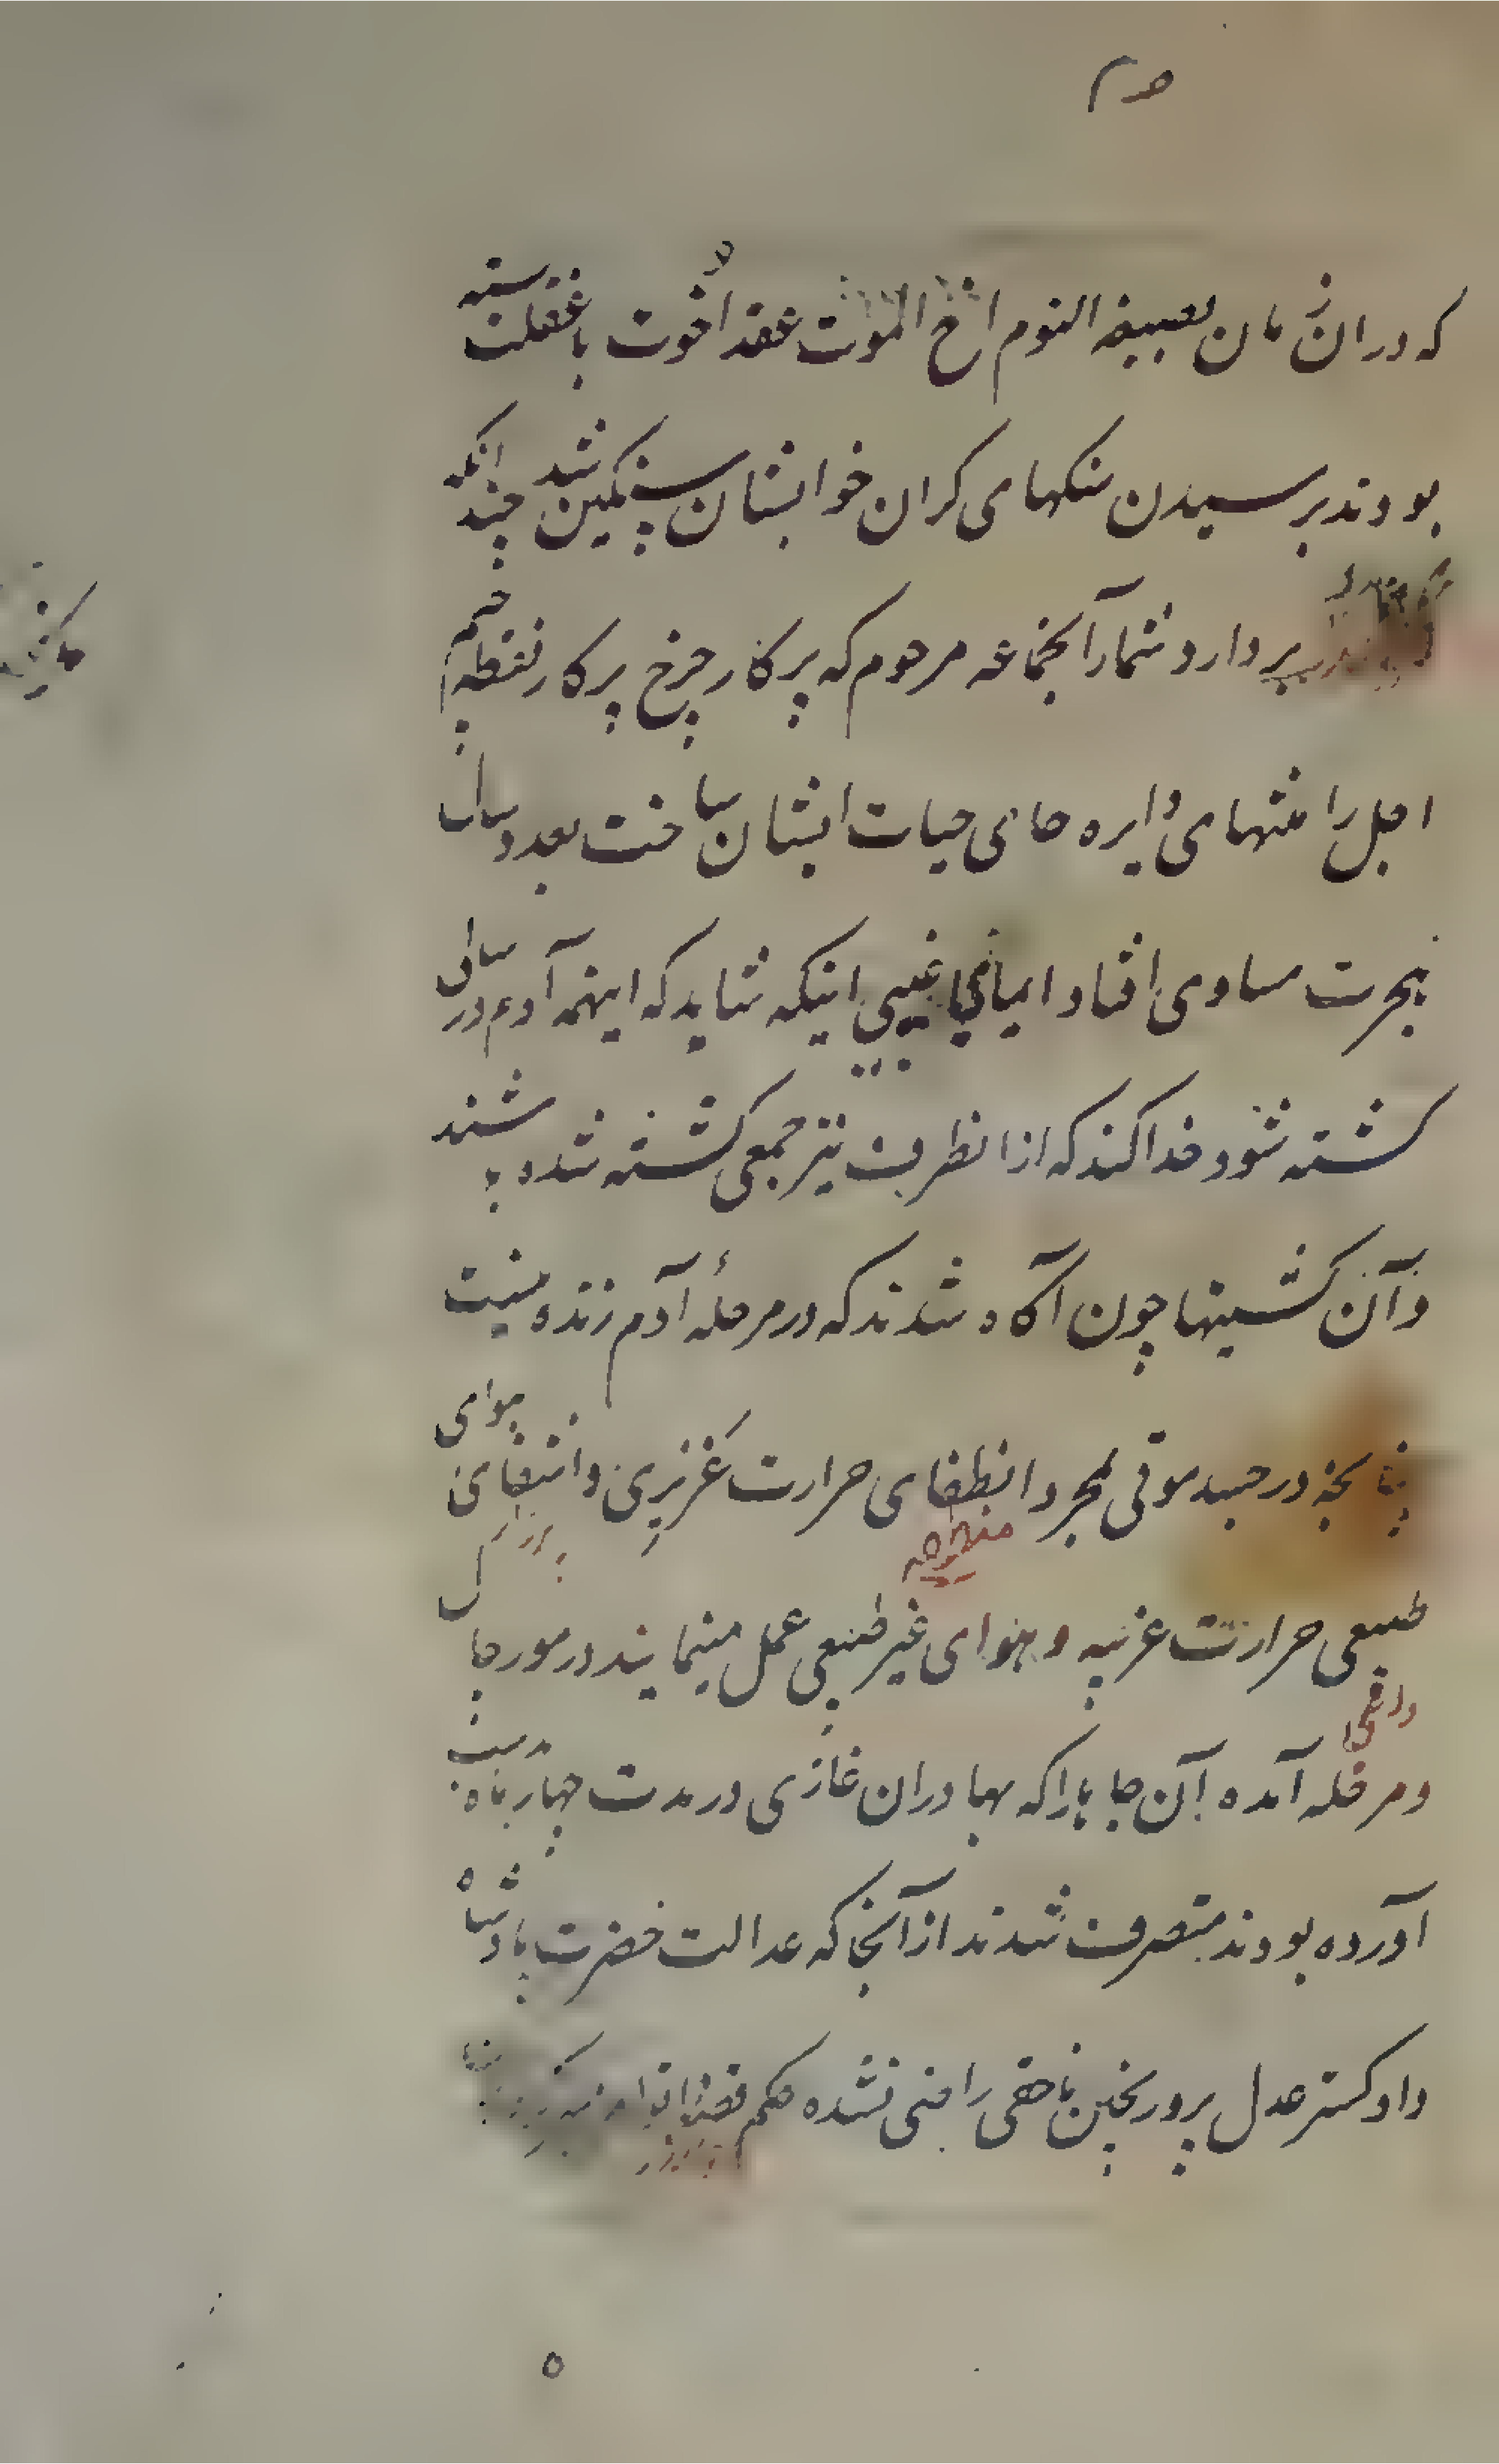 که دران زمان بصیغه النوم اخ الموت عقد اخوت با غفلت بسته
بودند برسیدن سنکهای کران خوابشان سنکین شد چندانکه
بردارد شمار آنجماعه مرحوم که پرکار چرخ پرکار نقطه جیم
اجل را منتهای دایره حای حیات ایشان ساخت بعدد سال
هجرت مساوی افتاد ایمای غیبی اینکه شاید که اینهمه آدم در سالی
کشته شود خدا کند که ازانطرف نیز جمعی کشته شده باشند
و آن کشتیها چون آگاه شدند که در مرحله آدم زنده نیست
چنانچه در جسد موتی بمجرد انطفای حرارت غریزی و انتفای هوای
طبیعی حرارت غریبه و هوای غیر طبیعی عمل مینمایند در مورجال
و مرحله آمده آن جاها را که بهادران غازی در مدت چهار ماه بدست
آورده بودند متصرف شدند از آنجا که عدالت حضرت پادشاه
دادکستر عدل پرور بخین ناحقی راضی نشده حکم